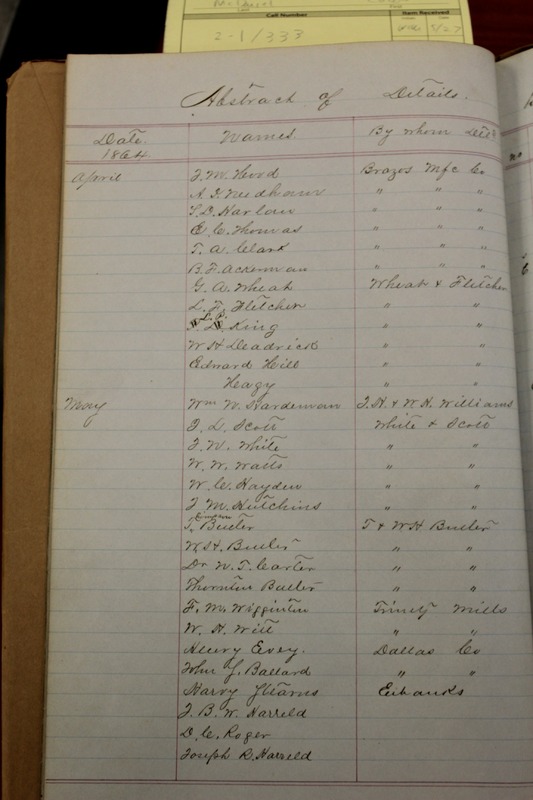 Call Number
Item Received
2-1/333
5/27
Abstract of Details.
Date. Names. By whom Det'd
1864.
April J. M. Hood Brazos Mfc Co
A. J. Needham " " "
S. D. Harlow " " "
E. C. Thomas " " "
T. A. Clark " " "
B. F. Ackerman " " "
G. A. Wheat Wheat & Fletcher
L. F. Fletcher " "
King " "
W. H. Deadrick " "
Edward Hill " "
Heagy " "
May Wm W. Hardeman J. H. & W. H. Williams
J. L. Scott White & Scott
J. W. White " "
W. W. Watts " "
W. C. Hayden " "
J. M. Hutchins " "
Butler T & W H Butler
W. H. Butler " "
Dr W. T. Carter " "
Thornton Butler " "
F. M. Wigginton Trinity Mills
W. H. Witt " "
Henry Evey. Dallas Co
John J. Ballard " "
Harvy Stearns Eubanks
J. B. W. Harreld
D. C. Roger
Joseph R. Harreld